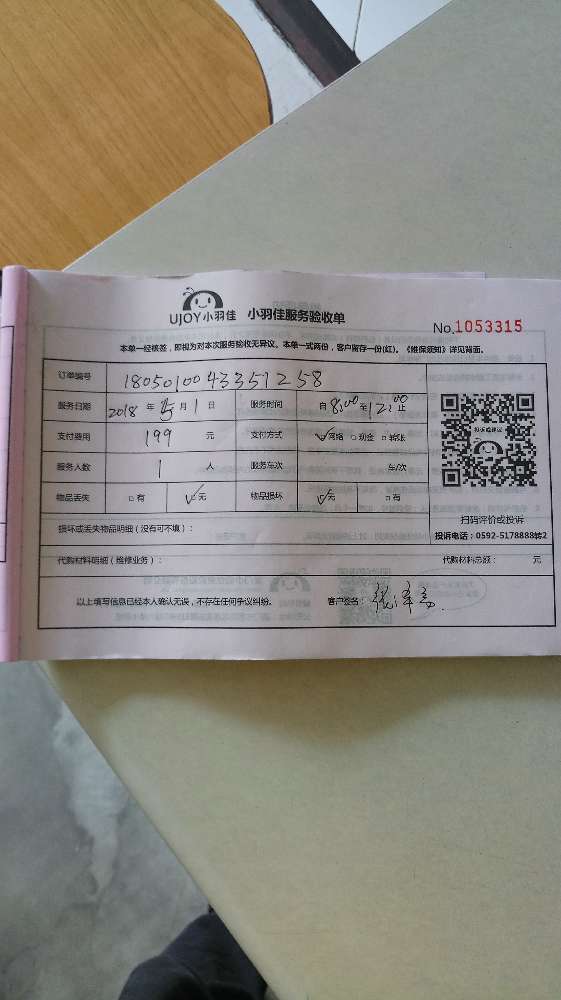 UJOY小羽佳 小羽佳服务验收单
No.1053315
本单一经核签，即视为对本次服务验收无异议。本单一式两份，客户留存一份(红)。《维保须知》详见背面。
订单编号 1805010043351258
服务日期 2018 年 5 月 1 日 服务时间 自 8:00 至 12:00 止
支付费用 199 元 支付方式 ☑网络 □现金 □转账
服务人数 1 人 服务车次 车/次
物品丢失 □有 ☑无 物品损坏 ☑无 □有
扫码评价或投诉
损坏或丢失物品明细（没有可不填）：
投诉电话：0592-5178888转2
代购材料明细（维修业务）： 代购材料总额： 元
以上填写信息已经本人确认无误，不存在任何争议纠纷。 客户签名：